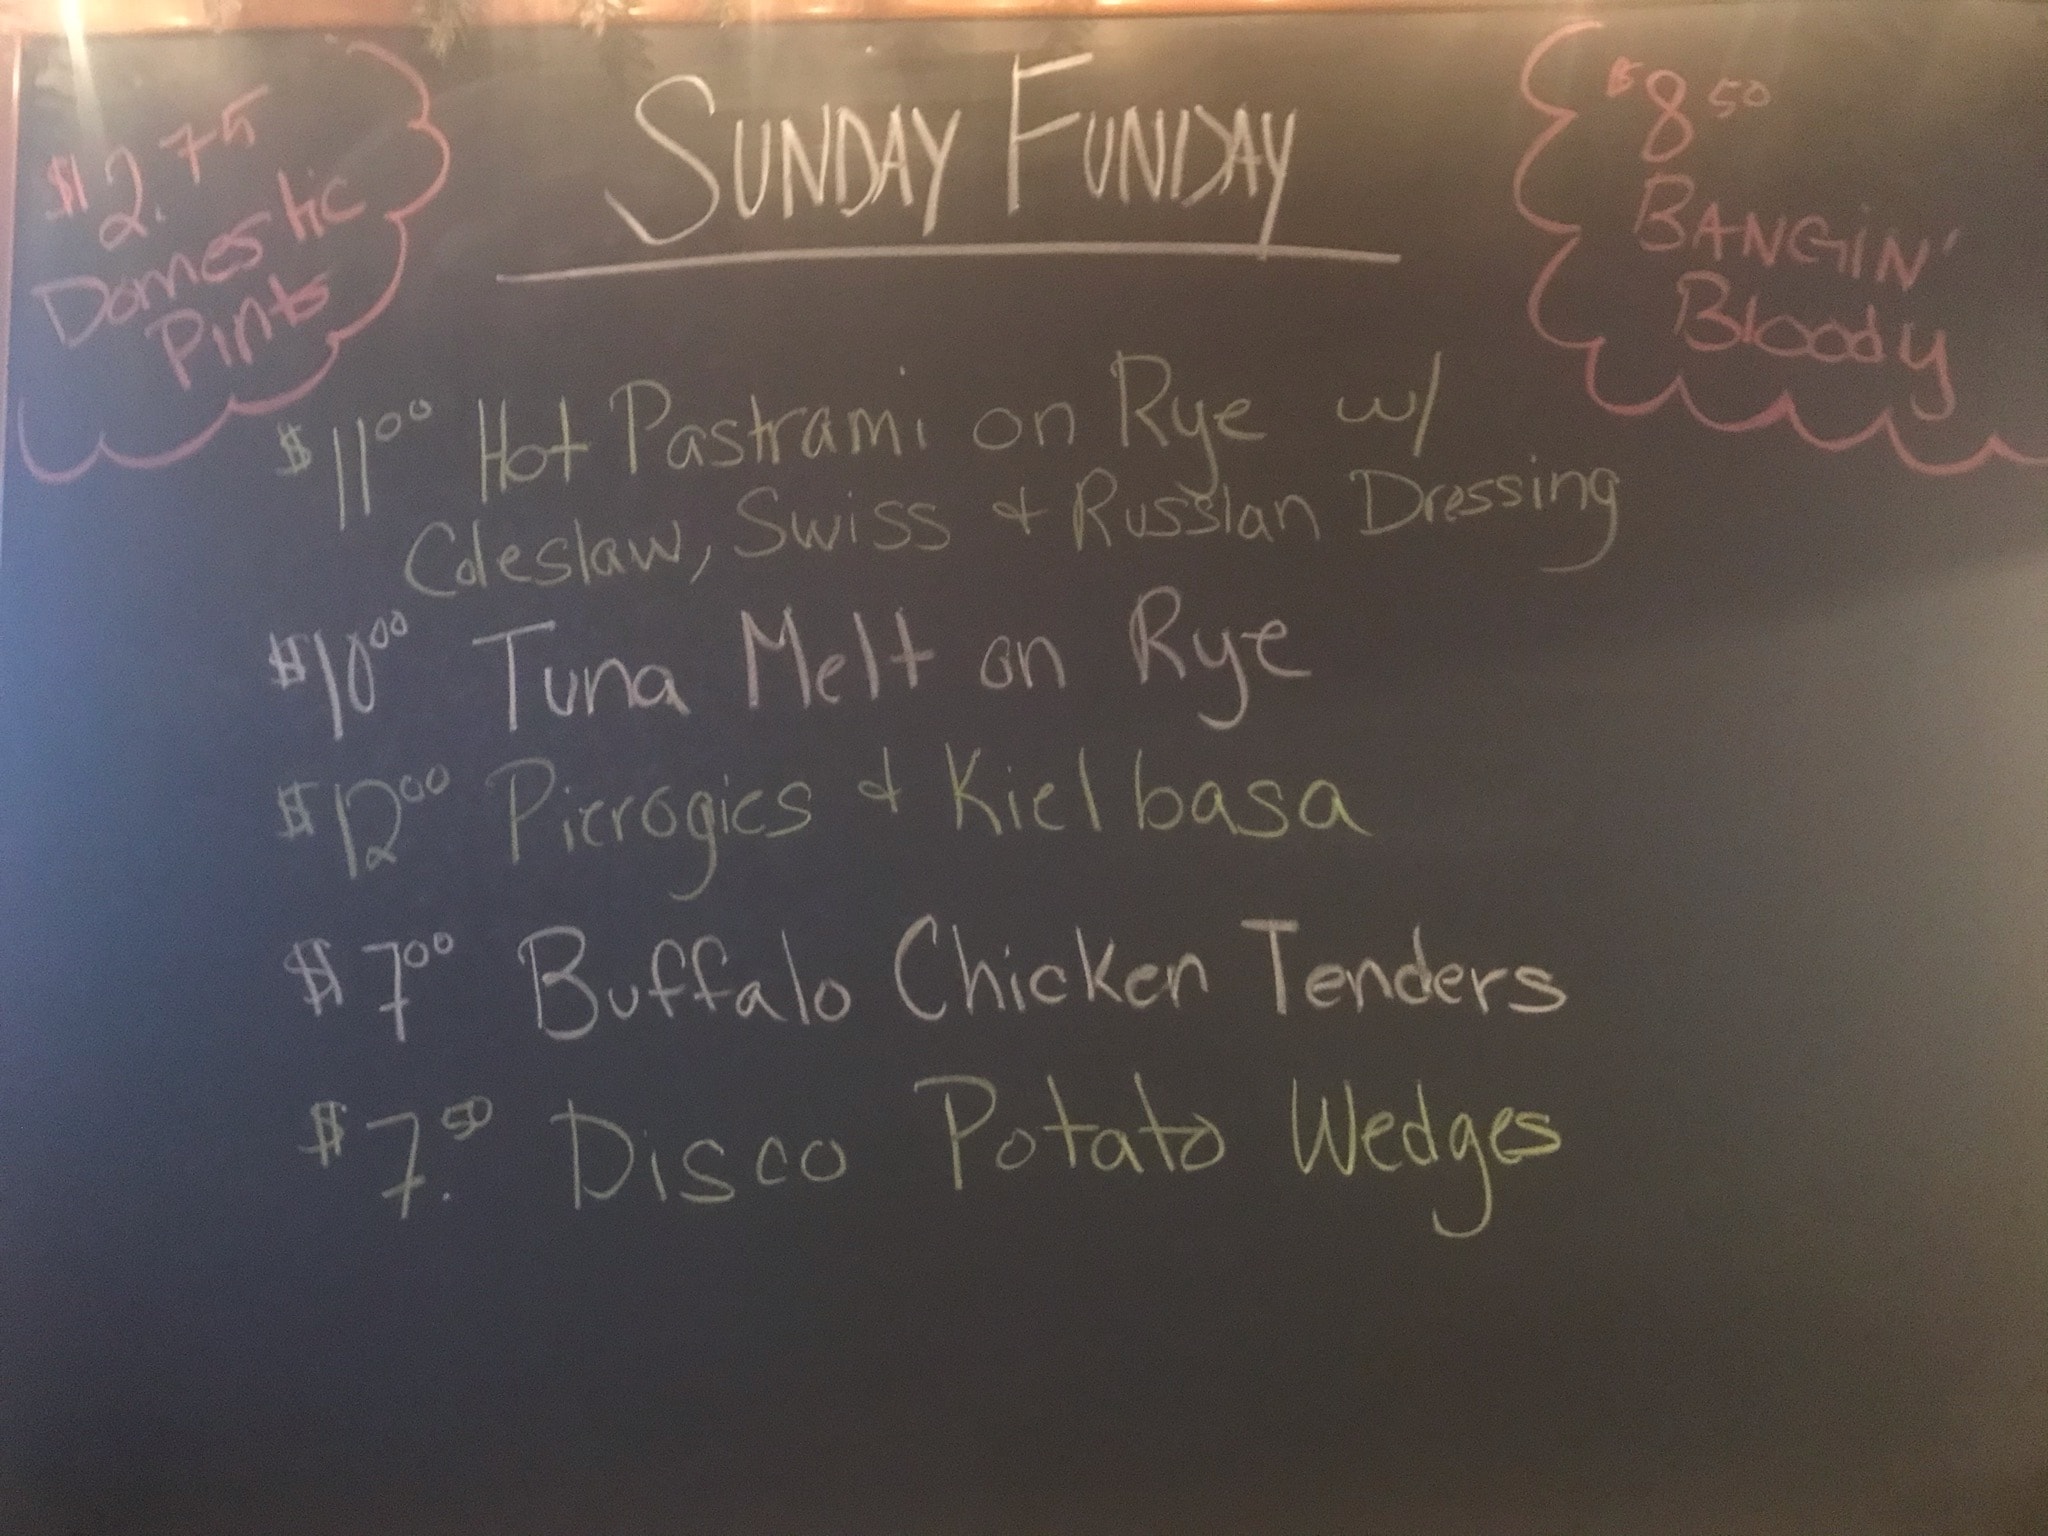 $2.75
Domestic
Pints
SUNDAY FUNDAY
$8 50
BANGIN'
Bloody
$11 00 Hot Pastrami on Rye w/
Coleslaw, Swiss & Russian Dressing
$10 00 Tuna Melt on Rye
$12 00 Pierogies & Kielbasa
$7 00 Buffalo Chicken Tenders
$7.50 Disco Potato Wedges